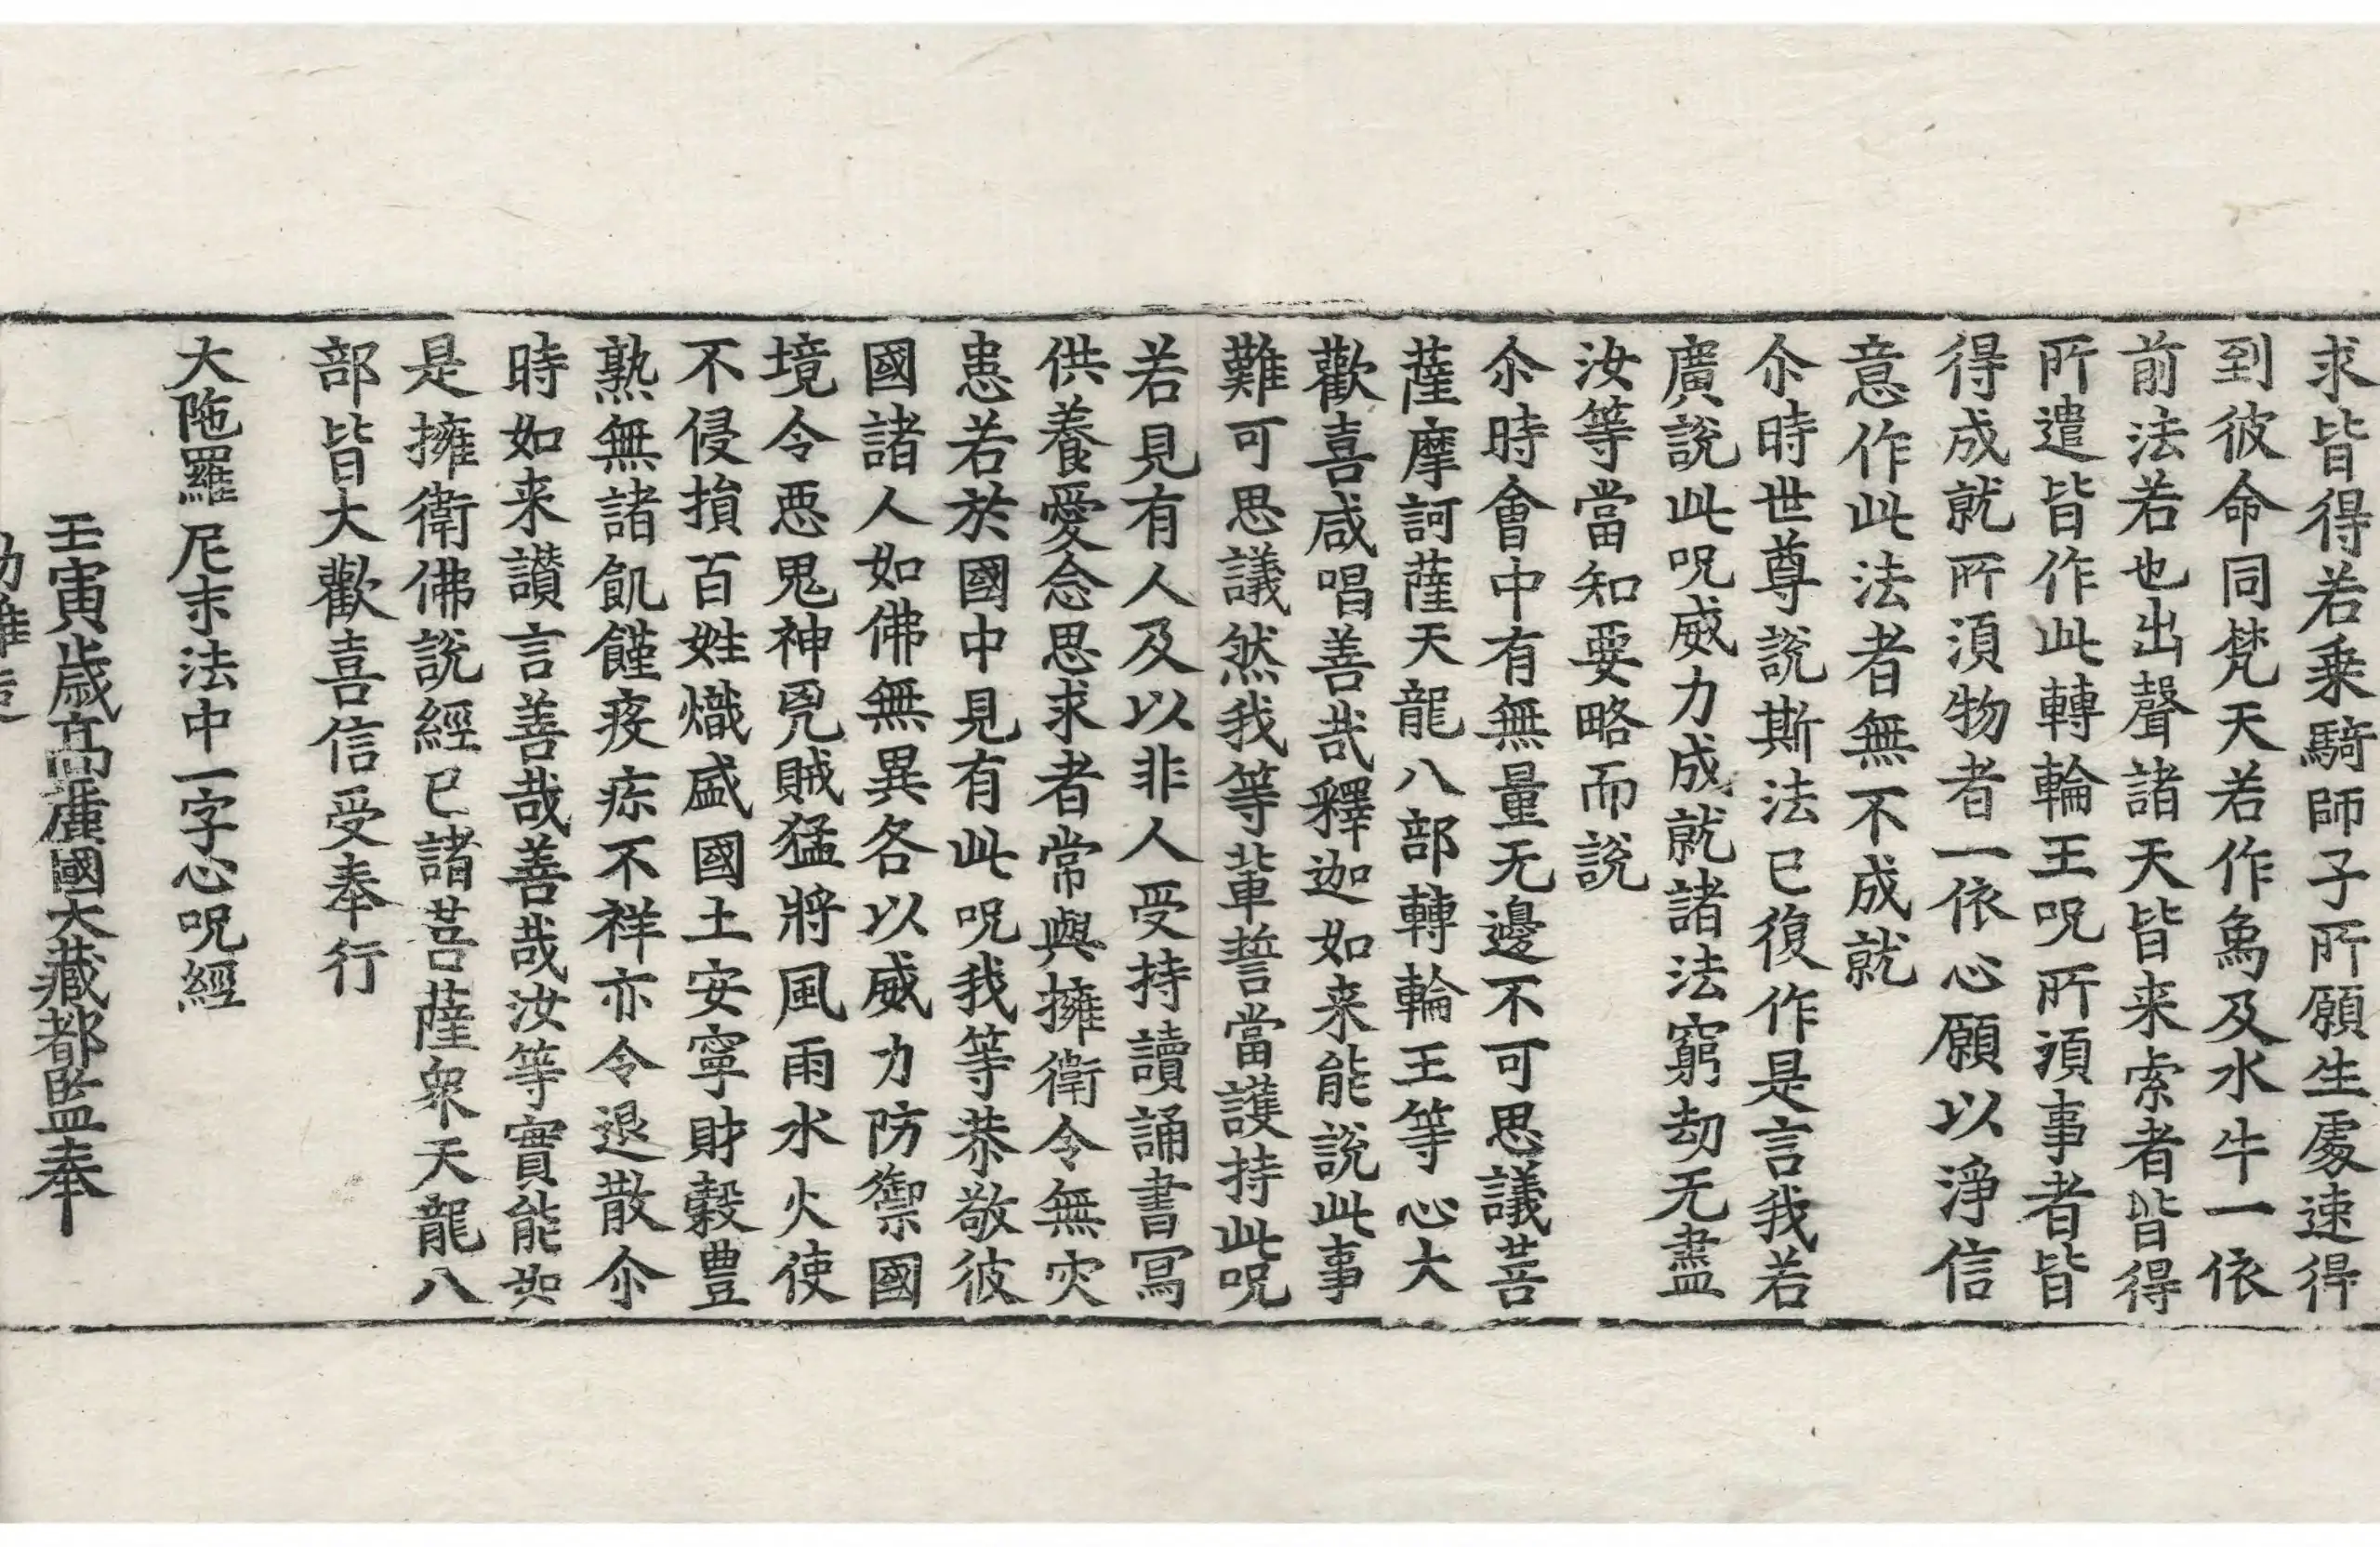 求皆得若乗騎師子所願生處速得
到彼命同梵天若作象及水牛一依
前法若也出聲諸天皆来索者皆得
所遣皆作此轉輪王呪所湏事者皆
得成就所湏物者一依心願以淨信
意作此法者無不成就
尒時世尊說斯法已復作是言我若
廣說此呪威力成就諸法窮劫无盡
汝等當知要略而說
尒時會中有無量无邊不可思議菩
薩摩訶薩天龍八部轉輪王等心大
歡喜咸唱善哉釋迦如来能說此事
難可思議然我等輩誓當護持此呪
若見有人及以非人受持讀誦書冩
供養愛念思求者常與擁衛令無灾
患若於國中見有此呪我等恭敬彼
國諸人如佛無異各以威力防禦國
境令惡鬼神兇賊猛將風雨水火使
不侵損百姓熾盛國土安寧財穀豊
熟無諸飢饉疫疾不祥亦令退散尒
時如来讃言善哉善哉汝等實能如
是擁衛佛說經已諸菩薩衆天龍八
部皆大歡喜信受奉行
大陁羅尼末法中一字心呪經
壬寅歳高麗國大藏都監奉